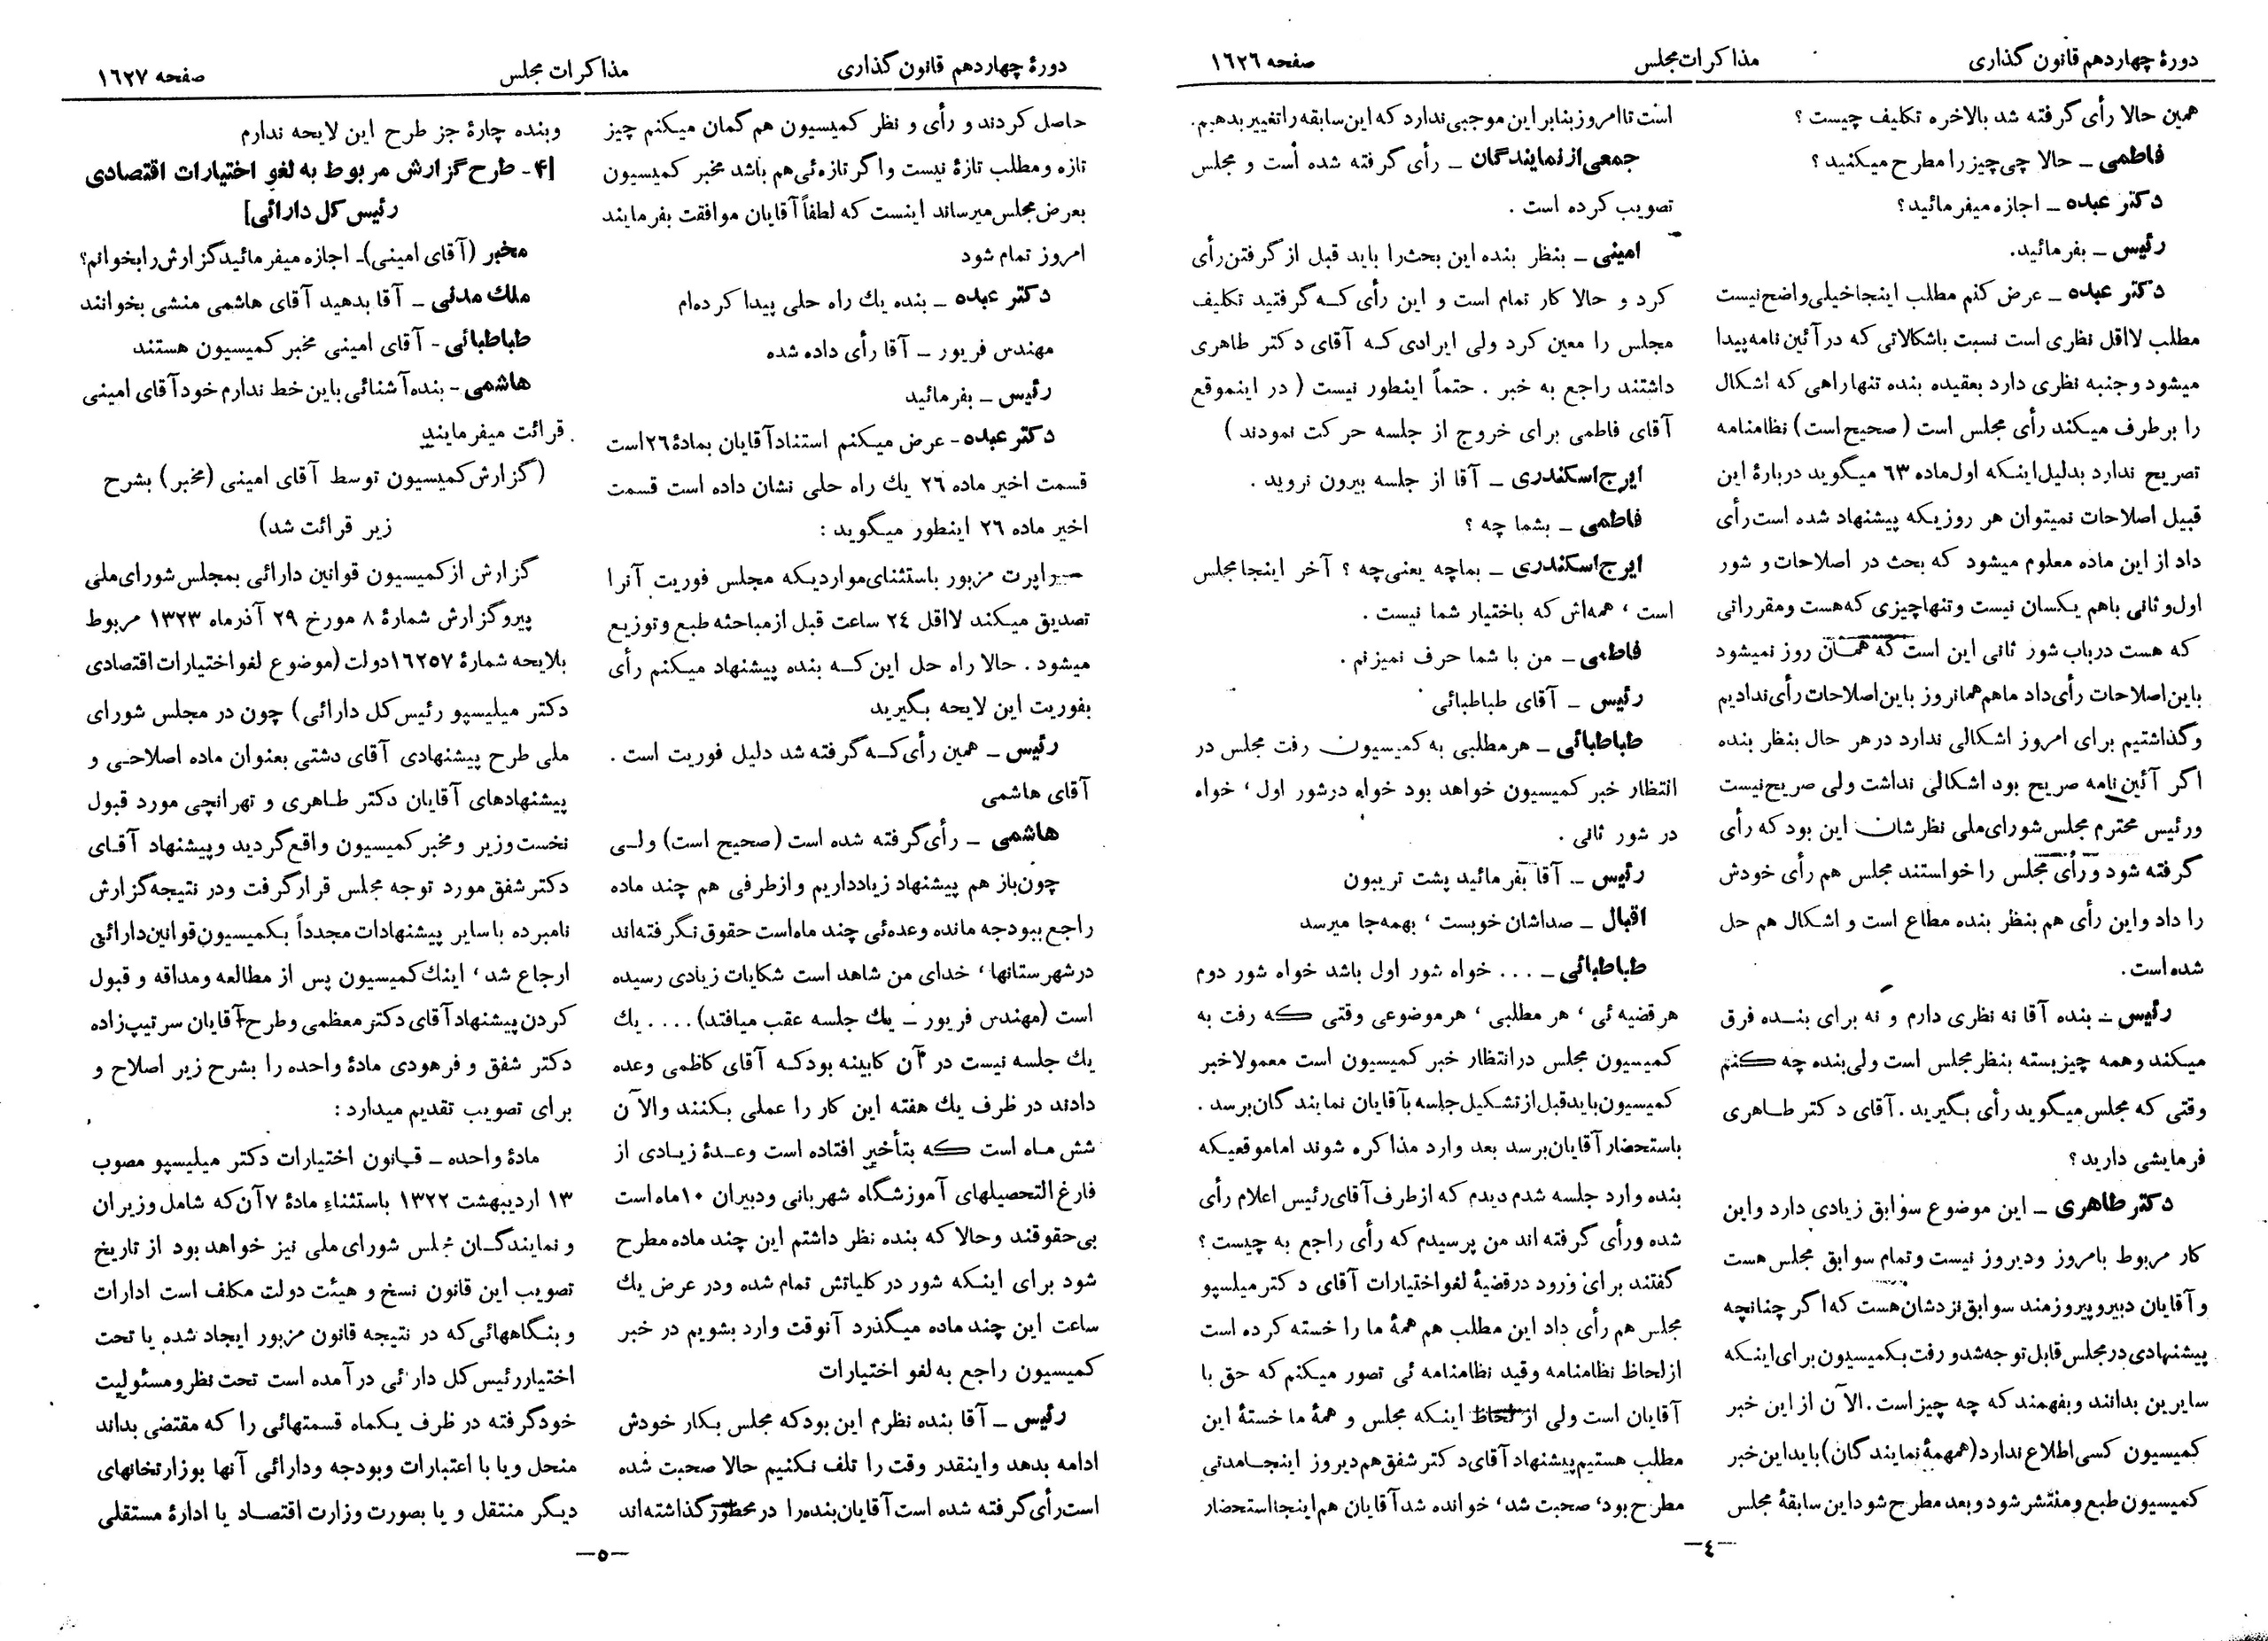 دورهٔ چهاردهم قانون گذاری
مذاکرات مجلس
صفحه ۱۶۲۶
همین حالا رأی گرفته شد بالاخره تکلیف چیست ؟
فاطمی ـ حالا چی چیز را مطرح میکنید ؟
دکتر عبده ـ اجازه میفرمائید؟
رئیس ـ بفرمائید.
دکتر عبده ـ عرض کنم مطلب اینجا خیلی واضح نیست
مطلب لااقل نظری است نسبت باشکالاتی که در آئین نامه پیدا
میشود و جنبه نظری دارد بعقیده بنده تنها راهی که اشکال
را برطرف میکند رأی مجلس است (صحیح است) نظامنامه
تصریح ندارد بدلیل اینکه اول ماده ۶۳ میگوید دربارهٔ این
قبیل اصلاحات نمیتوان هر روزیکه پیشنهاد شده است رأی
داد از این ماده معلوم میشود که بحث در اصلاحات و شور
اول و ثانی باهم یکسان نیست و تنها چیزی که هست و مقرراتی
که هست درباب شور ثانی این است که همان روز نمیشود
باین اصلاحات رأی داد ماهم همانروز باین اصلاحات رأی ندادیم
و گذاشتیم برای امروز اشکالی ندارد در هر حال بنظر بنده
اگر آئین نامه صریح بود اشکالی نداشت ولی صریح نیست
و رئیس محترم مجلس شورای ملی نظرشان این بود که رأی
گرفته شود و رأی مجلس را خواستند مجلس هم رأی خودش
را داد و این رأی هم بنظر بنده مطاع است و اشکال هم حل
شده است .
رئیس ـ بنده آقا نه نظری دارم و نه برای بنده فرق
میکند و همه چیز بسته بنظر مجلس است ولی بنده چه کنم
وقتی که مجلس میگوید رأی بگیرید . آقای دکتر طاهری
فرمایشی دارید ؟
دکتر طاهری ـ این موضوع سوابق زیادی دارد و این
کار مربوط بامروز و دیروز نیست و تمام سوابق مجلس هست
و آقایان دبیر و پیروزمند سوابق نزدشان هست که اگر چنانچه
پیشنهادی در مجلس قابل توجه شد و رفت بکمیسیون برای اینکه
سایرین بدانند و بفهمند که چه چیز است . الآن از این خبر
کمیسیون کسی اطلاع ندارد (همهمهٔ نمایندگان) باید این خبر
کمیسیون طبع و منتشر شود و بعد مطرح شود این سابقهٔ مجلس
است تا امروز بنابر این موجبی ندارد که این سابقه را تغییر بدهیم.
جمعی از نمایندگان ـ رأی گرفته شده است و مجلس
تصویب کرده است .
امینی ـ بنظر بنده این بحث را باید قبل از گرفتن رأی
کرد و حالا کار تمام است و این رأی که گرفتید تکلیف
مجلس را معین کرد ولی ایرادی که آقای دکتر طاهری
داشتند راجع به خبر . حتماً اینطور نیست ( در اینموقع
آقای فاطمی برای خروج از جلسه حرکت نمودند )
ایرج اسکندری ـ آقا از جلسه بیرون نروید .
فاطمی ـ بشما چه ؟
ایرج اسکندری ـ بماچه یعنی چه ؟ آخر اینجا مجلس
است ، همه‌اش که باختیار شما نیست .
فاطمی ـ من با شما حرف نمیزنم .
رئیس ـ آقای طباطبائی
طباطبائی ـ هر مطلبی به کمیسیون رفت مجلس در
انتظار خبر کمیسیون خواهد بود خواه در شور اول ، خواه
در شور ثانی .
رئیس ـ آقا بفرمائید پشت تریبون
اقبال ـ صداشان خوبست ، بهمه جا میرسد
طباطبائی ـ ... خواه شور اول باشد خواه شور دوم
هر قضیه ئی ، هر مطلبی ، هر موضوعی وقتی که رفت به
کمیسیون مجلس در انتظار خبر کمیسیون است معمولا خبر
کمیسیون باید قبل از تشکیل جلسه بآقایان نمایندگان برسد .
باستحضار آقایان برسد بعد وارد مذاکره شوند اما موقعیکه
بنده وارد جلسه شدم دیدم که از طرف آقای رئیس اعلام رأی
شده و رأی گرفته اند من پرسیدم که رأی راجع به چیست ؟
گفتند برای ورود در قضیهٔ لغو اختیارات آقای دکتر میلسپو
مجلس هم رأی داد این مطلب هم همهٔ ما را خسته کرده است
از لحاظ نظامنامه و قید نظامنامه ئی تصور میکنم که حق با
آقایان است ولی از لحاظ اینکه مجلس و همهٔ ما خستهٔ این
مطلب هستیم پیشنهاد آقای دکتر شفق هم دیروز اینجا مدتی
مطرح بود، صحبت شد، خوانده شد آقایان هم اینجا استحضار
ـ٤ـ
دورهٔ چهاردهم قانون گذاری
مذاکرات مجلس
صفحه ۱۶۲۷
حاصل کردند و رأی و نظر کمیسیون هم گمان میکنم چیز
تازه و مطلب تازهٔ نیست و اگر تازه ئی هم باشد مخبر کمیسیون
بعرض مجلس میرساند اینست که لطفاً آقایان موافقت بفرمایند
امروز تمام شود
دکتر عبده ـ بنده یك راه حلی پیدا کرده‌ام
مهندس فریور ـ آقا رأی داده شده
رئیس ـ بفرمائید
دکتر عبده ـ عرض میکنم استناد آقایان بمادهٔ ۲۶ است
قسمت اخیر ماده ۲۶ یك راه حلی نشان داده است قسمت
اخیر ماده ۲۶ اینطور میگوید :
راپرت مزبور باستثنای مواردیکه مجلس فوریت آنرا
تصدیق میکند لااقل ۲٤ ساعت قبل از مباحثه طبع و توزیع
میشود . حالا راه حل این که بنده پیشنهاد میکنم رأی
بفوریت این لایحه بگیرید
رئیس ـ همین رأی که گرفته شد دلیل فوریت است .
آقای هاشمی
هاشمی ـ رأی گرفته شده است (صحیح است) ولی
چون باز هم پیشنهاد زیاد داریم و از طرفی هم چند ماده
راجع ببودجه مانده و عده ئی چند ماه است حقوق نگرفته‌اند
در شهرستانها ، خدای من شاهد است شکایات زیادی رسیده
است (مهندس فریور ـ یك جلسه عقب میافتد) .... یك
یك جلسه نیست در آن کابینه بود که آقای کاظمی وعده
دادند در ظرف یك هفته این کار را عملی بکنند و الآن
شش ماه است که بتأخیر افتاده است و عدهٔ زیادی از
فارغ التحصیلهای آموزشگاه شهربانی و دبیران ۱۰ ماه است
بی حقوقند و حالا که بنده نظر داشتم این چند ماده مطرح
شود برای اینکه شور در کلیاتش تمام شده و در عرض یك
ساعت این چند ماده میگذرد آنوقت وارد بشویم در خبر
کمیسیون راجع به لغو اختیارات
رئیس ـ آقا بنده نظرم این بود که مجلس بکار خودش
ادامه بدهد و اینقدر وقت را تلف نکنیم حالا صحبت شده
است رأی گرفته شده است آقایان بنده را در محظور گذاشته‌اند
و بنده چارهٔ جز طرح این لایحه ندارم
[۴ـ طرح گزارش مربوط به لغو اختیارات اقتصادی
رئیس کل دارائی]
مخبر (آقای امینی)ـ اجازه میفرمائید گزارش را بخوانم؟
ملك مدنی ـ آقا بدهید آقای هاشمی منشی بخوانند
طباطبائی ـ آقای امینی مخبر کمیسیون هستند
هاشمی ـ بنده آشنائی باین خط ندارم خود آقای امینی
قرائت میفرمایند.
(گزارش کمیسیون توسط آقای امینی (مخبر) بشرح
زیر قرائت شد)
گزارش از کمیسیون قوانین دارائی بمجلس شورای ملی
پیرو گزارش شمارهٔ ۸ مورخ ۲۹ آذر ماه ۱۳۲۳ مربوط
بلایحه شمارهٔ ۱۶۲۵۷ دولت (موضوع لغو اختیارات اقتصادی
دکتر میلیسپو رئیس کل دارائی) چون در مجلس شورای
ملی طرح پیشنهادی آقای دشتی بعنوان ماده اصلاحی و
پیشنهادهای آقایان دکتر طاهری و تهرانچی مورد قبول
نخست وزیر و مخبر کمیسیون واقع گردید و پیشنهاد آقای
دکتر شفق مورد توجه مجلس قرار گرفت و در نتیجه گزارش
نامبرده با سایر پیشنهادات مجدداً بکمیسیون قوانین دارائی
ارجاع شد ، اینك کمیسیون پس از مطالعه و مداقه و قبول
کردن پیشنهاد آقای دکتر معظمی و طرح آقایان سرتیپ زاده
دکتر شفق و فرهودی مادهٔ واحده را بشرح زیر اصلاح و
برای تصویب تقدیم میدارد :
مادهٔ واحده ـ قانون اختیارات دکتر میلیسپو مصوب
۱۳ اردیبهشت ۱۳۲۲ باستثناء مادهٔ ۷ آن که شامل وزیران
و نمایندگان مجلس شورای ملی نیز خواهد بود از تاریخ
تصویب این قانون نسخ و هیئت دولت مکلف است ادارات
و بنگاههائی که در نتیجه قانون مزبور ایجاد شده یا تحت
اختیار رئیس کل دارائی در آمده است تحت نظر و مسئولیت
خود گرفته در ظرف یکماه قسمتهائی را که مقتضی بداند
منحل و یا با اعتبارات و بودجه و دارائی آنها بوزارتخانهای
دیگر منتقل و یا بصورت وزارت اقتصاد یا ادارهٔ مستقلی
ـ۵ـ